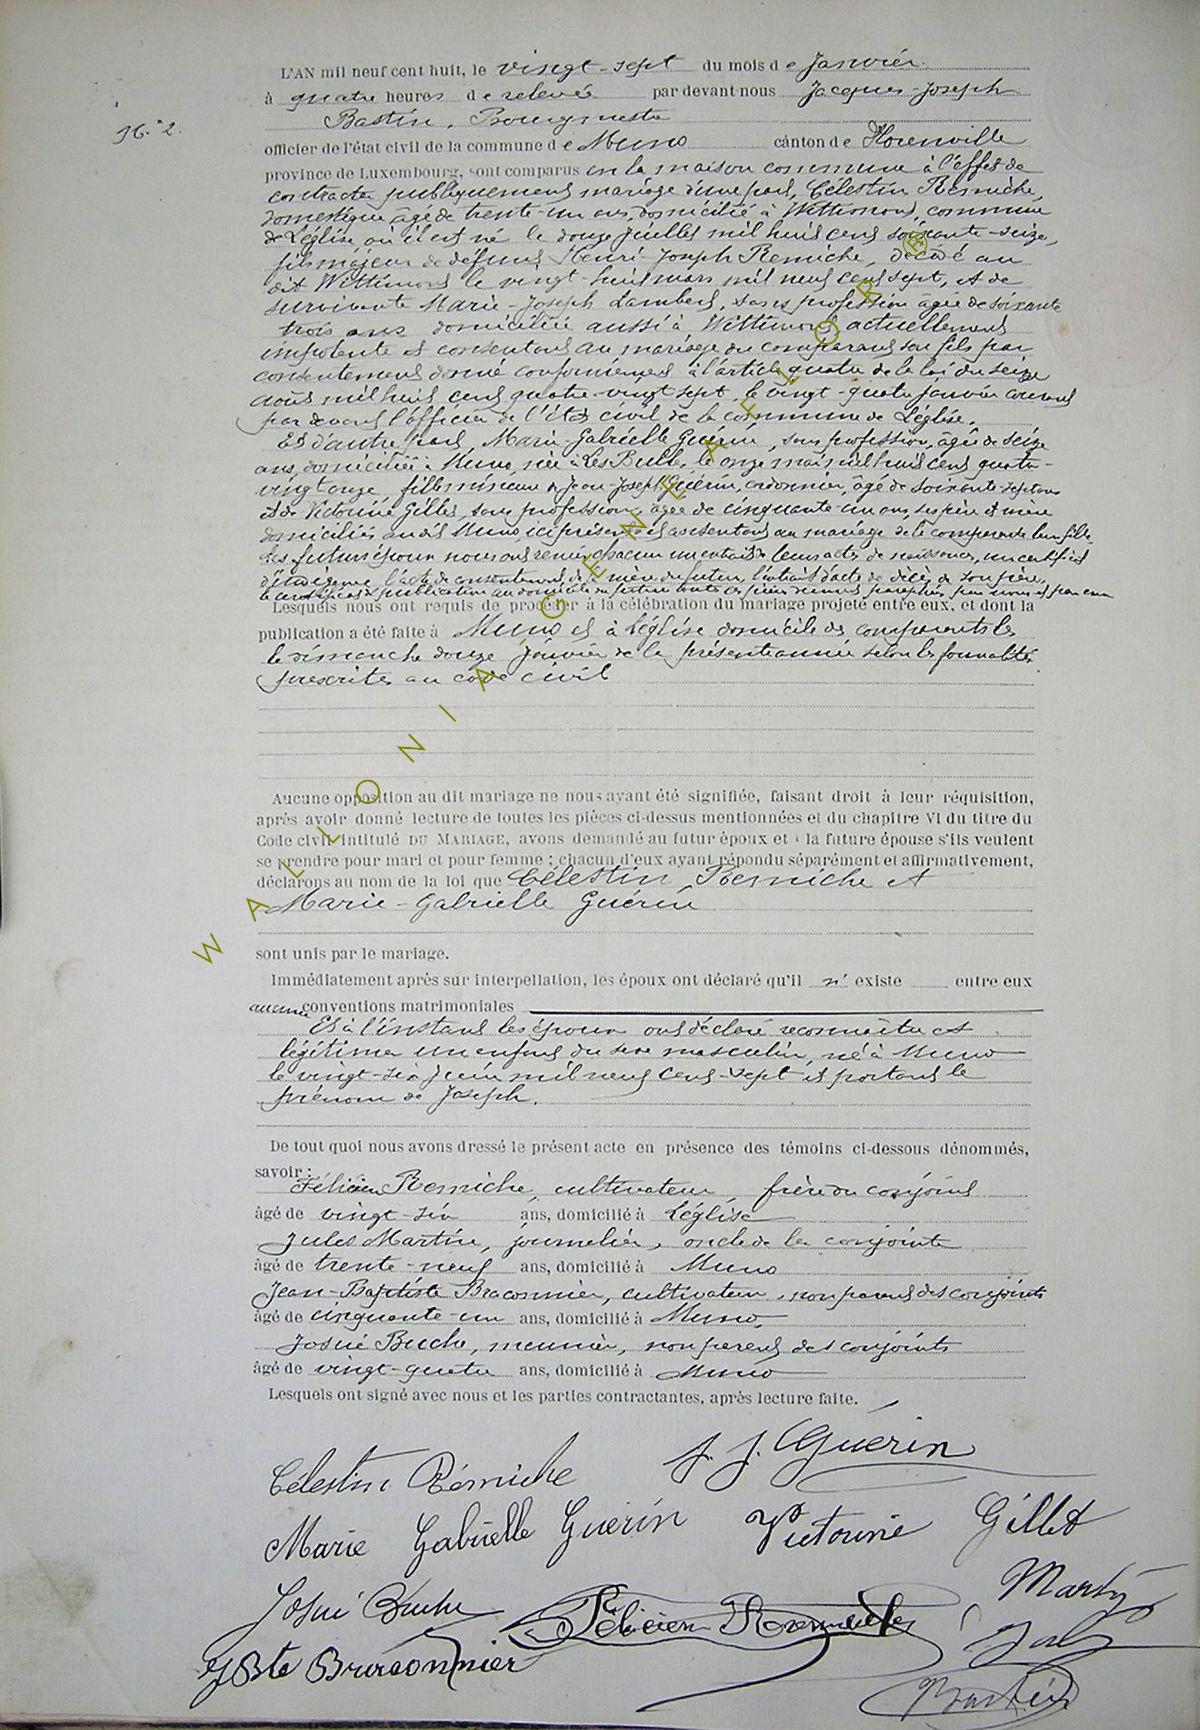 N.° 2.
L'AN mil neuf cent huit, le vingt-sept du mois de Janvier
à quatre heures de relevée par devant nous Jacques-Joseph
Bastin, Bourgmestre
officier de l'état civil de la commune de Muno canton de Florenville
province de Luxembourg, sont comparus en la maison commune à l'effet de
contracter publiquement mariage d'une part, Célestin Remiche,
domestique âgé de trente-un ans, domicilié à Wittimont, commune
de Léglise où il est né le douze juillet mil huit cent soixante-seize,
fils majeur de défunt Henri-Joseph Remiche, décédé au
dit Wittimont le vingt-huit mars mil neuf cent sept, et de
survivante Marie-Joseph Lambert, sans profession âgée de soixante
trois ans domiciliée aussi à Wittimont actuellement
impotente et consentant au mariage du comparant son fils par
consentement donné conformément à l'article quatre de la loi du seize
août mil huit cent quatre-vingt sept, le vingt-quatre janvier courant
par devant l'officier de l'état civil de la commune de Léglise.
Et d'autre part, Marie-Gabrielle Guérin, sans profession, âgée de seize
ans, domiciliée à Muno, née à Les Bulles, le onze mai mil huit cent quatre-
vingt onze, fille mineure de Jean-Joseph Guérin, cordonnier, âgé de soixante-sept ans
et de Victorine Gillet, sans profession, âgée de cinquante-un ans, ses père et mère
domiciliés au dit Muno ici présents et consentant au mariage de la comparante leur fille
Les futurs époux nous ont remis chacun un extrait de leurs actes de naissance, un certificat
l'acte de consentement de la mère du futur, l'extrait d'acte de décès de son père,
le certificat de publication au domicile du futur toutes ces pièces paraphées par nous et par eux
Lesquels nous ont requis de procéder à la célébration du mariage projeté entre eux, et dont la
publication a été faite à Muno et à Léglise domicile des comparants les
le dimanche douze janvier de la présente année selon les formalités
prescrites au code civil
Aucune opposition au dit mariage ne nous ayant été signifiée, faisant droit à leur réquisition,
après avoir donné lecture de toutes les pièces ci-dessus mentionnées et du chapitre VI du titre du
Code civil intitulé DU MARIAGE, avons demandé au futur époux et à la future épouse s'ils veulent
se prendre pour mari et pour femme ; chacun d'eux ayant répondu séparément et affirmativement,
déclarons au nom de la loi que Célestin Remiche et
Marie-Gabrielle Guérin
sont unis par le mariage.
Immédiatement après sur interpellation, les époux ont déclaré qu'il n'existe entre eux
aucune conventions matrimoniales
Et à l'instant les époux ont déclaré reconnaître et
légitimer un enfant du sexe masculin, né à Muno
le vingt-six juin mil neuf cent-sept et portant le
prénom de Joseph.
De tout quoi nous avons dressé le présent acte en présence des témoins ci-dessous dénommés,
savoir :
Félicien Remiche, cultivateur, frère du conjoint
âgé de vingt-six ans, domicilié à Léglise
Jules Martin, journalier, oncle de la conjointe
âgé de trente-neuf ans, domicilié à Muno
Jean-Baptiste Braconnier, cultivateur, non parent des conjoints
âgé de cinquante-un ans, domicilié à Muno,
Josué Buche, meunier, non parent des conjoints
âgé de vingt-quatre ans, domicilié à Muno
Lesquels ont signé avec nous et les parties contractantes, après lecture faite.
Célestin Rémiche J. J. Guérin
Marie Gabrielle Guérin Victorine Gillet
Josué Buche Félicien Remiche Martin
Jules
JBte Braconnier
Bastin
WALLONIA GENEA FLOR ®